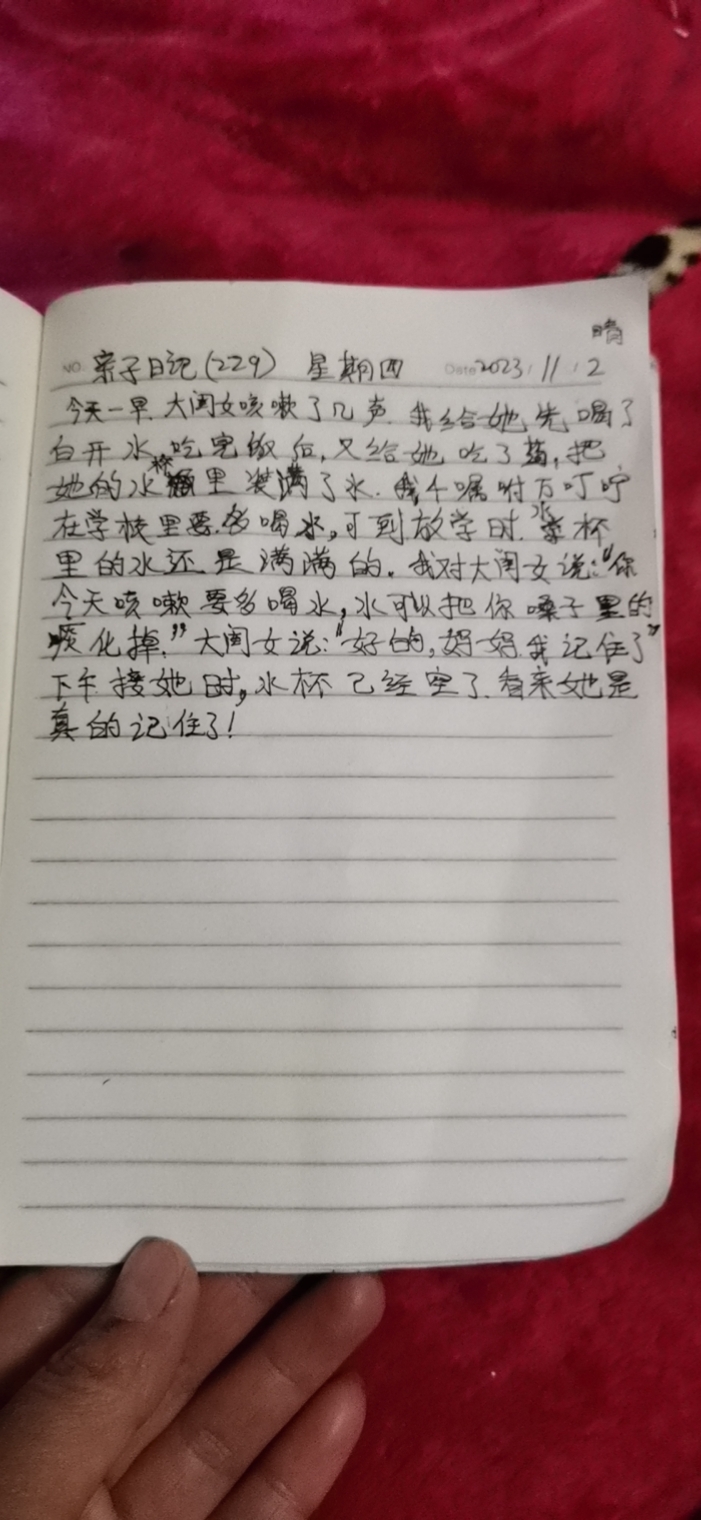 晴
NO. 亲子日记(229) 星期四 Date 2023.11.2
今天一早.大闺女咳嗽了几声.我给她先喝了
白开水,吃完饭后,又给她吃了药,把
她的水杯里装满了水.我千嘱咐万叮咛
在学校里要多喝水,可到放学时.水杯
里的水还是满满的。我对大闺女说:"你
今天咳嗽要多喝水,水可以把你嗓子里的
痰化掉."大闺女说:"好的,妈妈.我记住了"
下午接她时,水杯已经空了.看来她是
真的记住了!